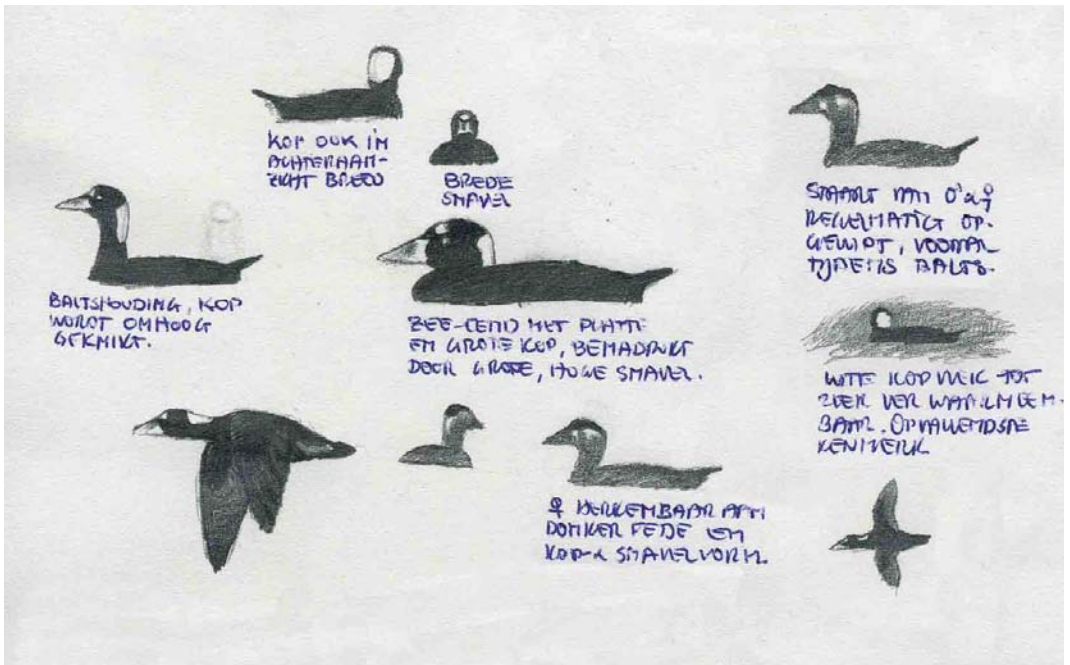 KOP OOK IN
ACHTERAAN-
ZICHT BREED
BREDE
SNAVEL
STAART VAN ♂ & ♀
REGELMATIG OP-
GEWIPT, VOORAL
TIJDENS BALTS.
BALTSHOUDING, KOP
WORDT OMHOOG
GEKNIKT.
ZEE-EEND MET PLATTE
EN GROTE KOP, BENADRUKT
DOOR GROTE, HOGE SNAVEL.
WITTE KOPVLEK TOT
ZEER VER WAARNEEM-
BAAR. OPVALLENDSTE
KENMERK
♀ HERKENBAAR AAN
DONKER VEDE EN
KOP- & SNAVELVORM.